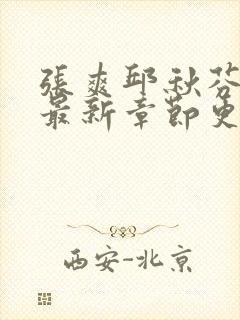 張爽邱秋芬
最新章節更
西安-北京